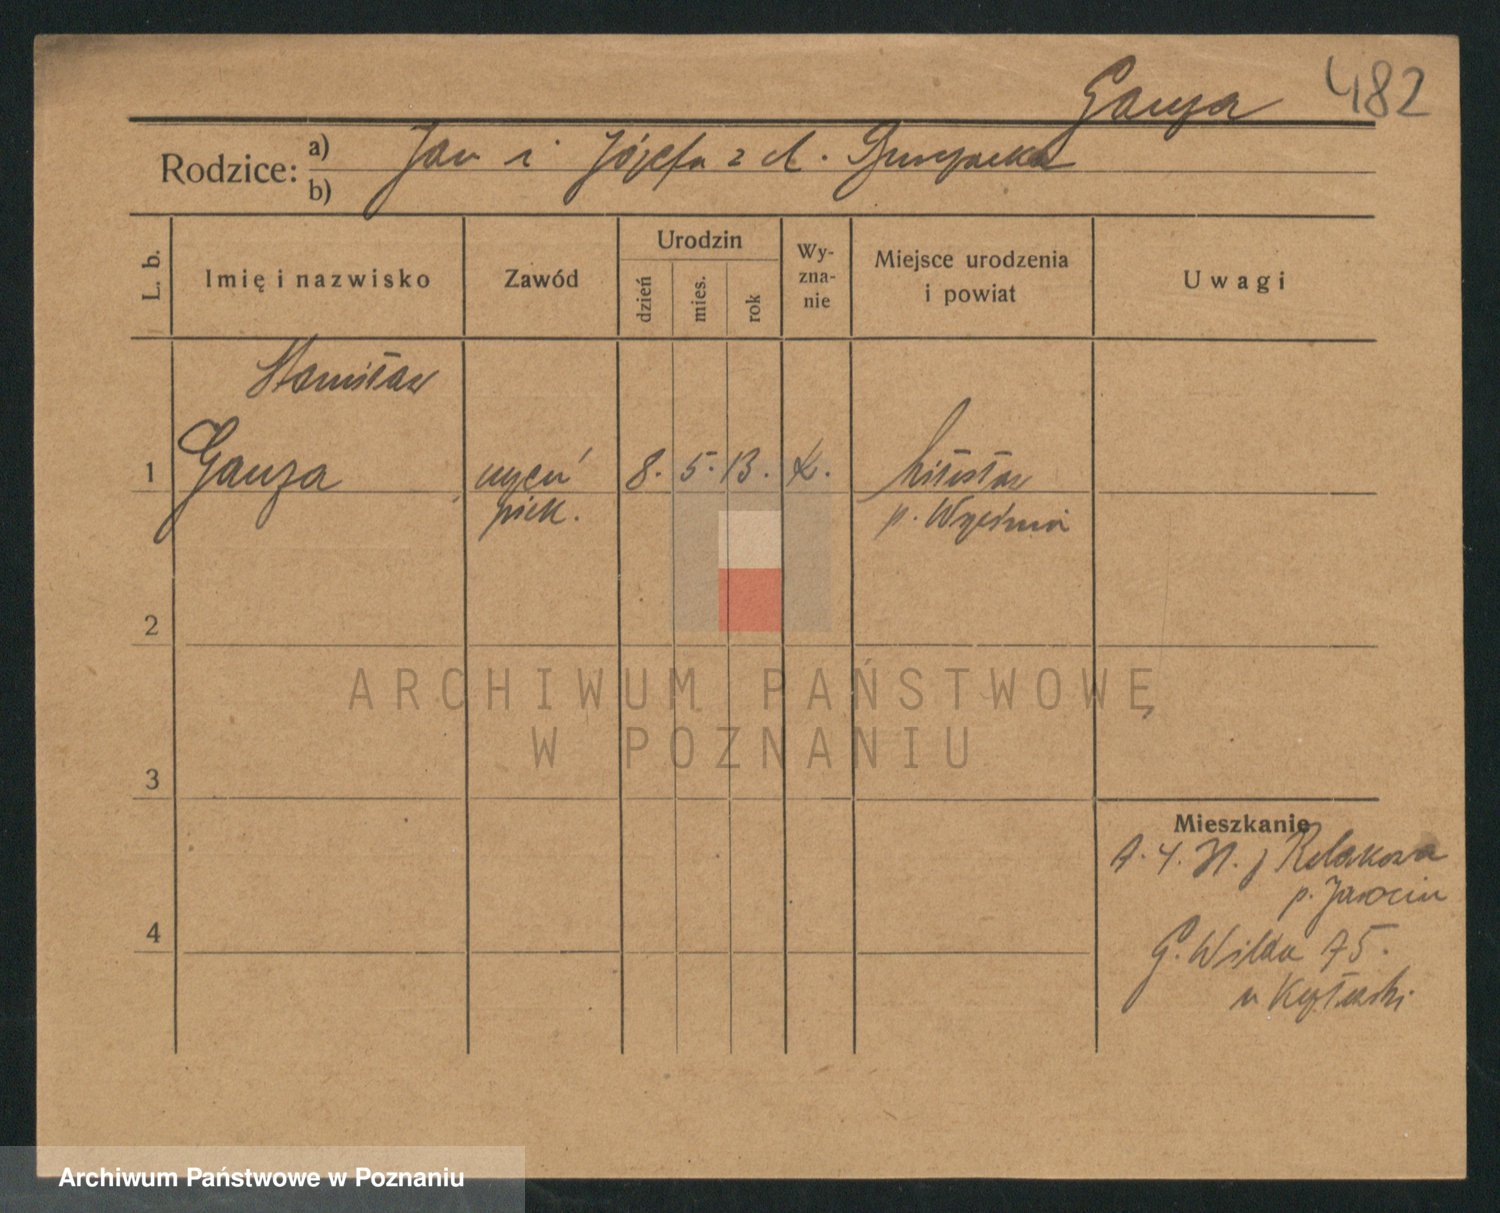 Ganza 482
Rodzice: a) Jan i Józefa z d.
b)
L. b.
Imię i nazwisko
Zawód
Urodzin
dzień
mies.
rok
Wy-
zna-
nie
Miejsce urodzenia
i powiat
Uwagi
Stanisław
1 Ganza uczeń 8. 5. 13. k. Miłosław
piek. p. Września
2
3
4
ARCHIWUM PAŃSTWOWE
W POZNANIU
Mieszkanie
p. Jarocin
G. Wilda 75.
u
Archiwum Państwowe w Poznaniu